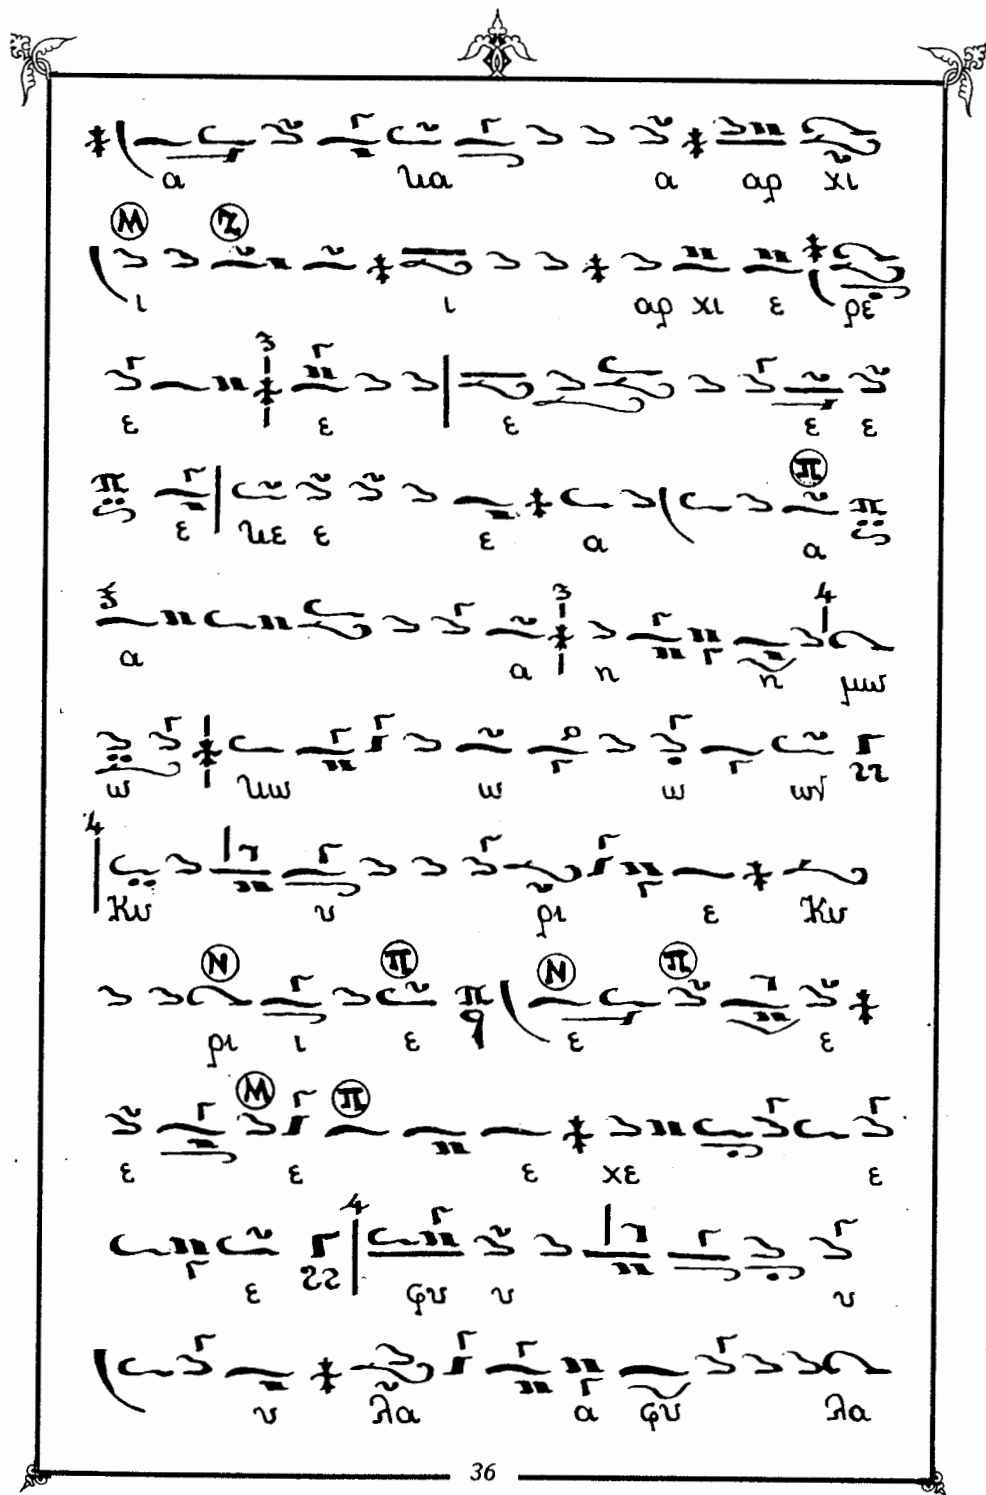 α να α αρ χι
Μ Ζ
ι ι αρ χι ε ρε
3
ε ε ε ε ε
Π
π ε νε ε ε α α π
3 4
α α η η μω
ω νω ω ω ων
4
Κυ υ ρι ε Κυ
Ν Π Ν Π
ρι ι ε π ε ε
Μ Π
ε ε ε χε ε
4
ε φυ υ υ
υ λα α φυ λα
36